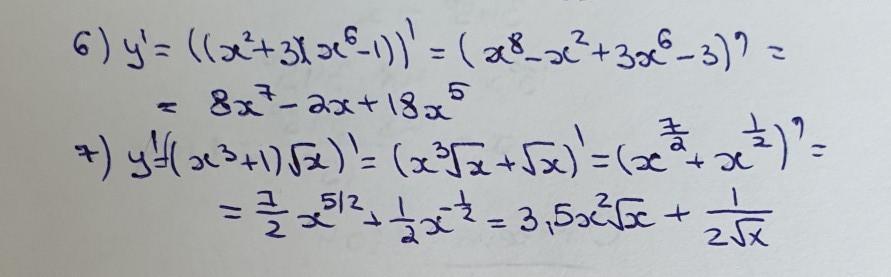 6) y' = ((x²+3)(x⁶-1))' = (x⁸-x²+3x⁶-3)' =
= 8x⁷-2x+18x⁵
7) y'=(x³+1)√x)' = (x³√x+√x)' = (x^(7/2) + x^(1/2))' =
= 7/2 x^(5/2) + 1/2 x^(-1/2) = 3,5x²√x + 1/(2√x)